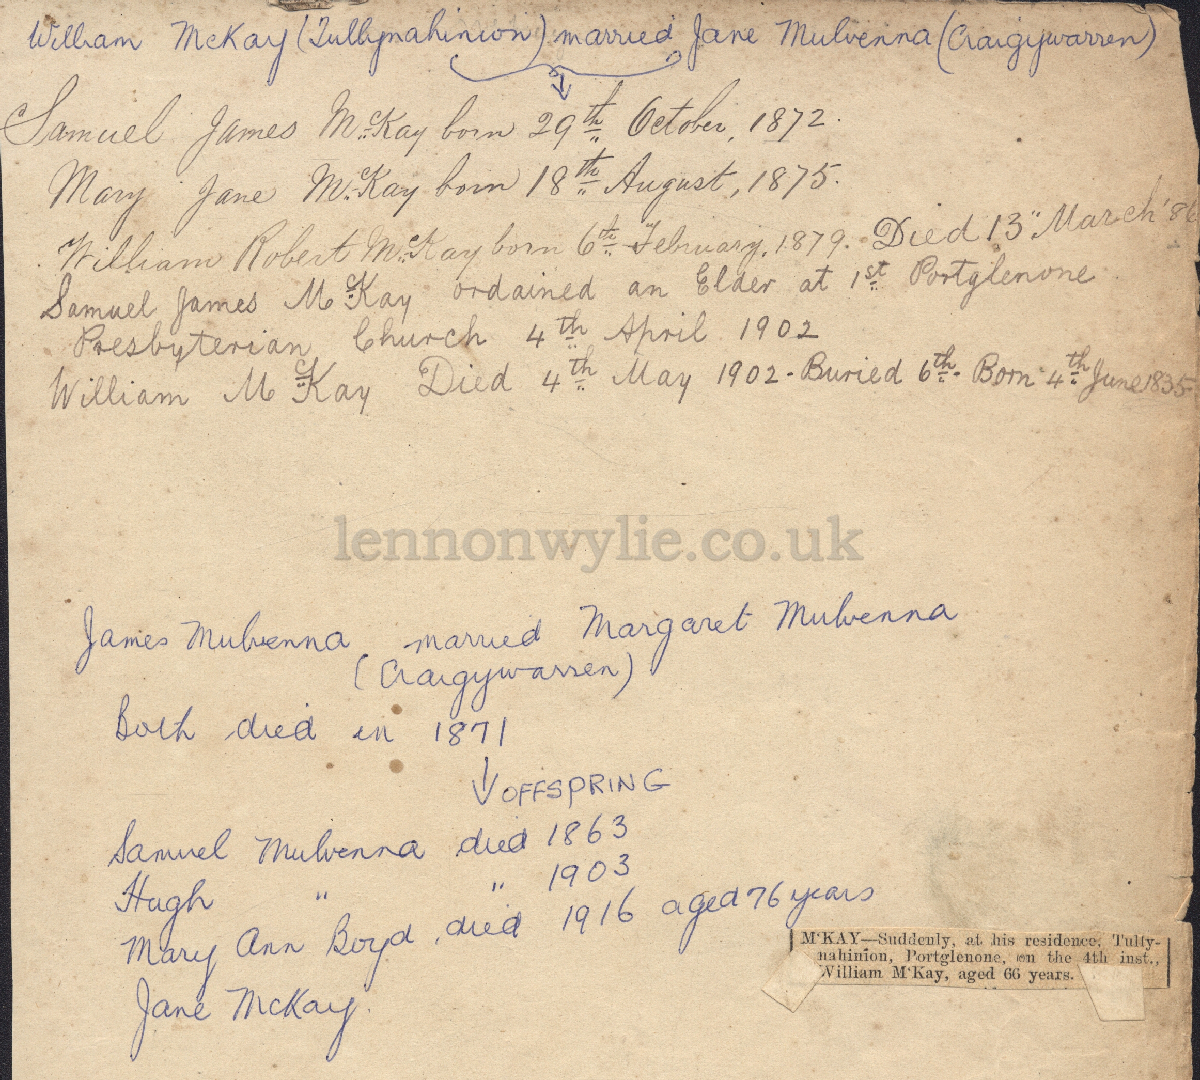 William McKay (Tullynahinion) married Jane Mulvenna (Craigywarren)
Samuel James McKay born 29th October, 1872.
Mary Jane McKay born 18th August, 1875.
William Robert McKay born 6th February, 1879. Died 13" March '86
Samuel James McKay ordained an Elder at 1st Portglenone
Presbyterian Church 4th April 1902
William McKay Died 4th May 1902. Buried 6th. Born 4th June 1835
lennonwylie.co.uk
James Mulvenna married Margaret Mulvenna
(Craigywarren)
Both died in 1871
OFFSPRING
Samuel Mulvenna died 1863
Hugh " " 1903
Mary Ann Boyd, died 1916 aged 76 years
Jane McKay.
M'KAY—Suddenly, at his residence, Tully-
nahinion, Portglenone, on the 4th inst.,
William M'Kay, aged 66 years.